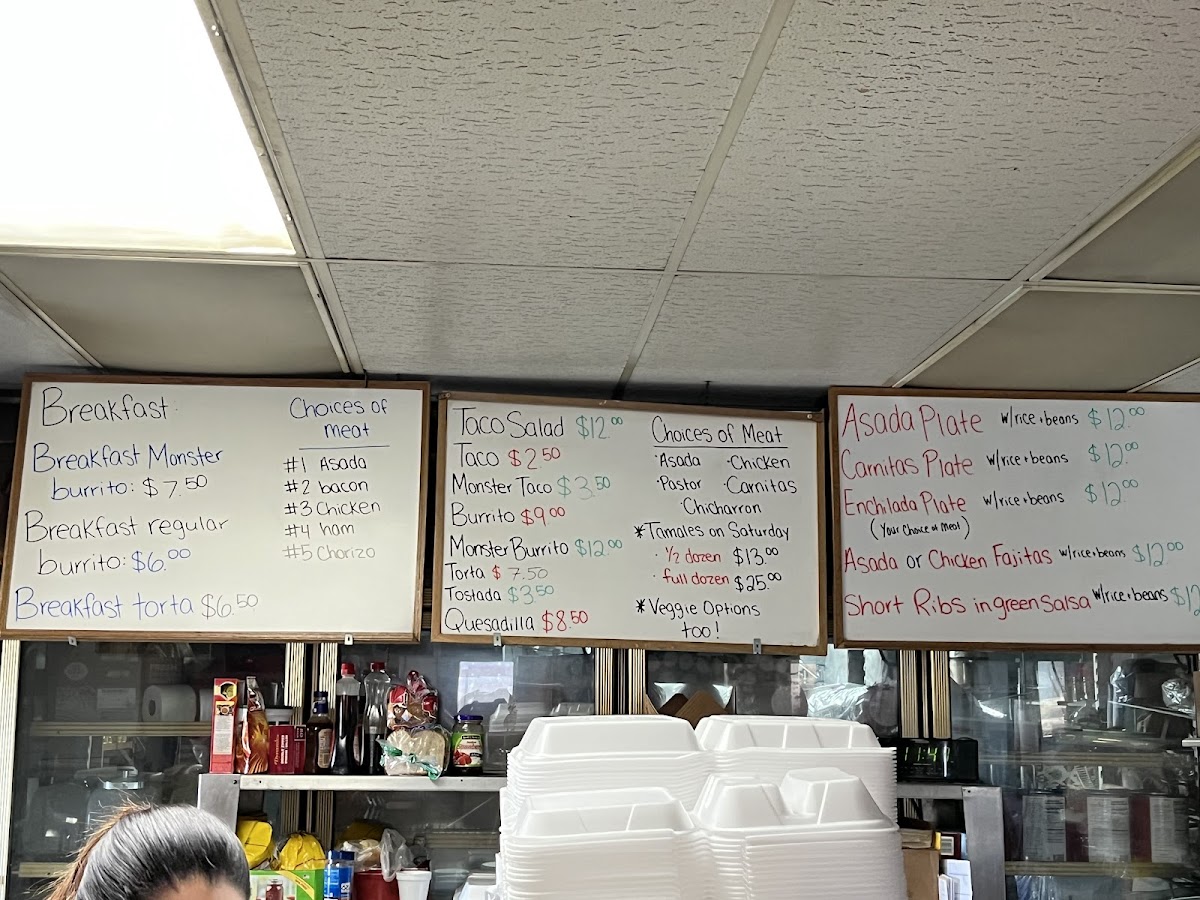 Breakfast:
Breakfast Monster
burrito: $7.50
Breakfast regular
burrito: $6.00
Breakfast torta $6.50
Choices of
meat
#1 Asada
#2 bacon
#3 Chicken
#4 ham
#5 Chorizo
Taco Salad $12.00
Taco $2.50
Monster Taco $3.50
Burrito $9.00
Monster Burrito $12.00
Torta $7.50
Tostada $3.50
Quesadilla $8.50
Choices of Meat
·Asada ·Chicken
·Pastor ·Carnitas
·Chicharron
*Tamales on Saturday
· 1/2 dozen $13.00
· full dozen $25.00
*Veggie Options
too!
Asada Plate w/rice+beans $12.00
Carnitas Plate w/rice+beans $12.00
Enchilada Plate w/rice+beans $12.00
(Your Choice of Meat)
Asada or Chicken Fajitas w/rice+beans $12.00
Short Ribs in green Salsa w/rice+beans $12